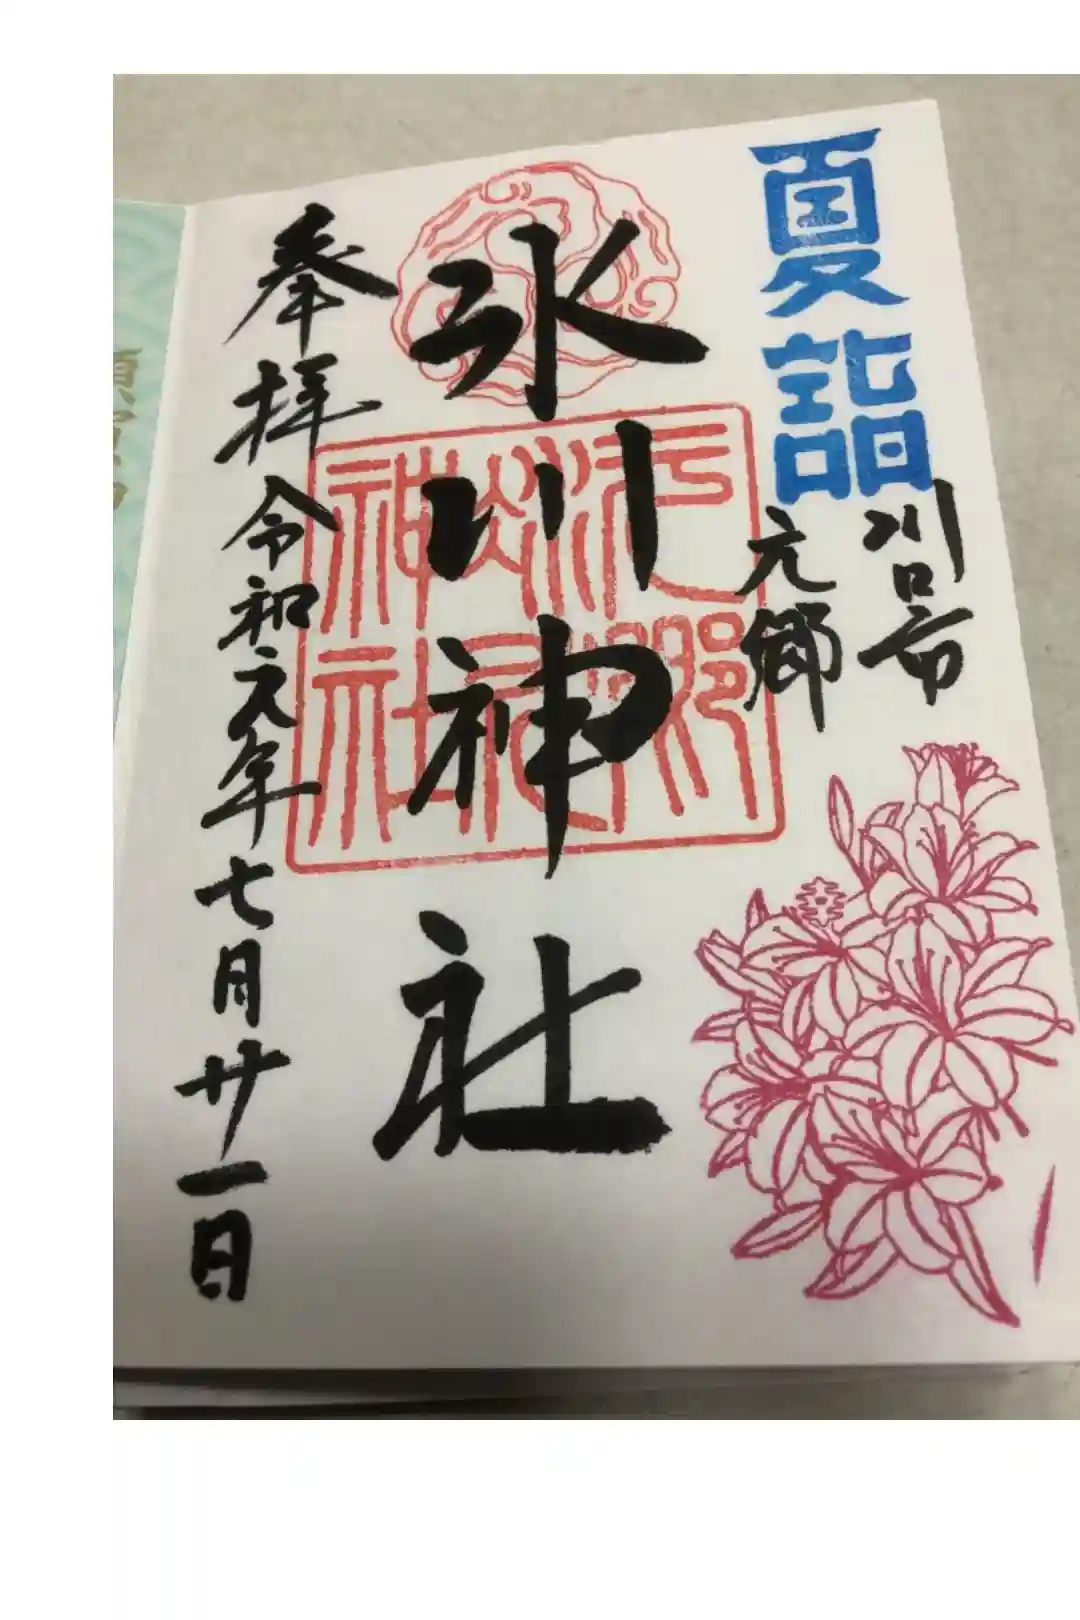 夏詣
川口市
元郷
氷川神社
奉拝 令和元年七月廿一日
元郷
氷川
神社
幸